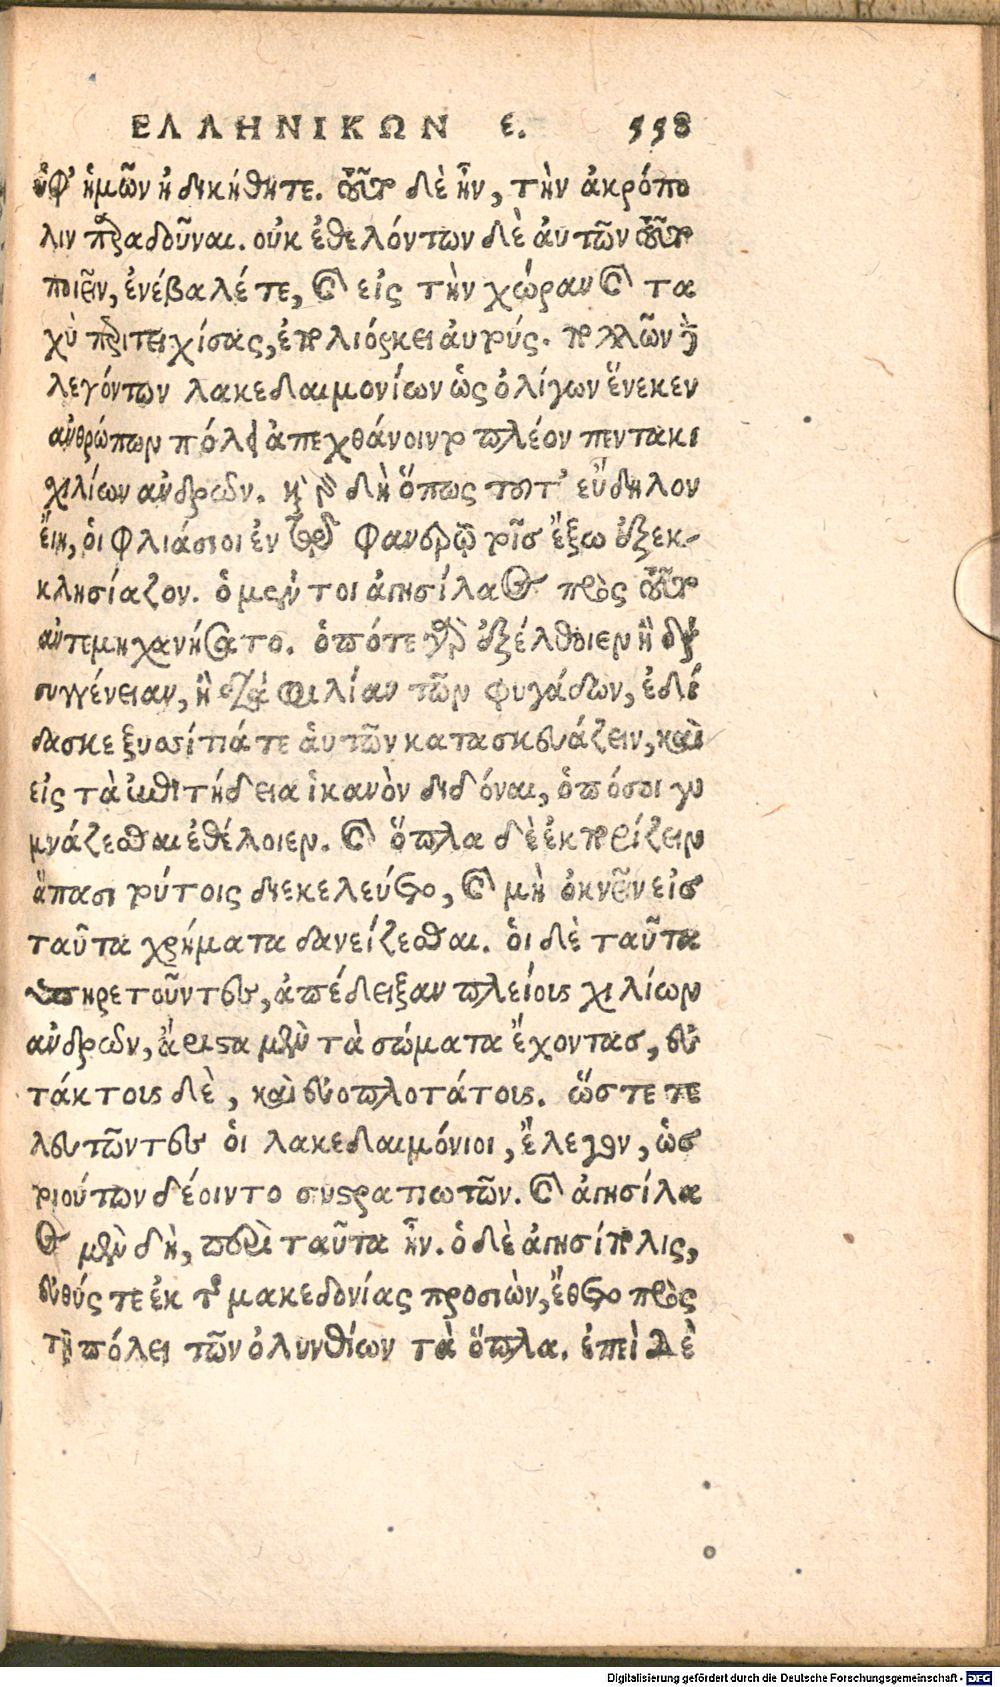 ΕΛΛΗΝΙΚΩΝ ε. 558
ὑφ' ἡμῶν ἠδικήθητε. τοῦτο δὲ ἦν, τὴν ἀκρόπο
λιν παραδοῦναι. οὐκ ἐθελόντων δὲ αὐτῶν τοῦτο
ποιεῖν, ἐνέβαλέ τε, καὶ εἰς τὴν χώραν καὶ τα
χὺ περιτειχίσας, ἐπολιόρκει αὐτούς. πολλῶν δὲ
λεγόντων λακεδαιμονίων ὡς ὀλίγων ἕνεκεν
ἀνθρώπων πόλει ἀπεχθάνοιντο πλέον πεντακι
χιλίων ἀνδρῶν. καὶ γὰρ δὴ ὅπως τοῦτ' εὔδηλον
εἴη, οἱ φλιάσιοι ἐν τῷ φανερῷ τοῖς ἔξω ἐξεκ-
κλησίαζον. ὁ μέντοι ἀγησίλαος πρὸς τοῦτο
ἀντεμηχανήσατο. ὁπότε γὰρ ἐξέλθοιεν ἢ διὰ
συγγένειαν, ἢ διὰ φιλίαν τῶν φυγάδων, ἐδί
δασκε ξυσσίτιά τε αὐτῶν κατασκευάζειν, καὶ
εἰς τὰ ἐπιτήδεια ἱκανὸν διδόναι, ὁπόσοι γυ
μνάζεσθαι ἐθέλοιεν. καὶ ὅπλα δὲ ἐκπορίζειν
ἅπασι τούτοις διεκελεύετο, καὶ μὴ ὀκνεῖν εἰς
ταῦτα χρήματα δανείζεσθαι. οἱ δὲ ταῦτα
ὑπηρετοῦντες, ἀπέδειξαν πλείους χιλίων
ἀνδρῶν, ἄριστα μὲν τὰ σώματα ἔχοντας, εὐ
τάκτους δὲ, καὶ εὐοπλοτάτους. ὥστε τε
λευτῶντες οἱ λακεδαιμόνιοι, ἔλεγον, ὡς
τοιούτων δέοιντο συστρατιωτῶν. καὶ ἀγησίλα
ος μὲν δὴ, περὶ ταῦτα ἦν. ὁ δὲ ἀγησίπολις,
εὐθύς τε ἐκ τῆς μακεδονίας προσιὼν, ἔθετο πρὸς
τῇ πόλει τῶν ὀλυνθίων τὰ ὅπλα. ἐπεὶ δὲ
Digitalisierung gefördert durch die Deutsche Forschungsgemeinschaft - DFG